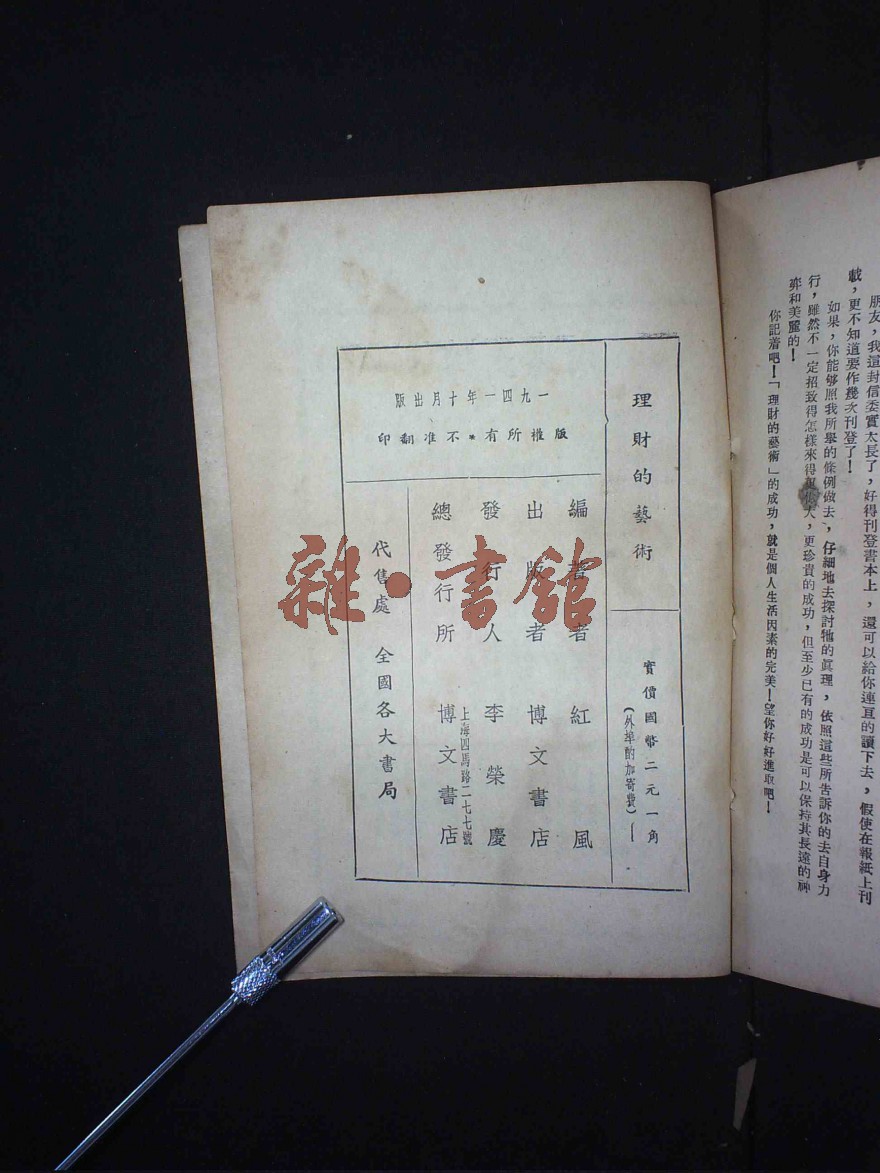 朋友，我這封信委實太長了，好得刊登書本上，還可以給你連亘的讀下去，假使在報紙上刊
載，更不知道要作幾次刊登了！
如果，你能够照我所舉的條例做去，仔細地去探討牠的眞理，依照這些所告訴你的去自身力
行，雖然不一定招致得怎樣來得大，更珍貴的成功，但至少已有的成功是可以保持其長遠的神
奕和美麗的！
你記着吧！「理財的藝術」的成功，就是個人生活因素的完美！望你好好進取吧！
理財的藝術
實價國幣二元一角
（外埠酌加寄費）
一九四一年十月出版
版權所有＊不准翻印
編著者 紅風
出版者 博文書店
發行人 李榮慶
上海四馬路二七七號
總發行所 博文書店
代售處 全國各大書局
雜·書舘